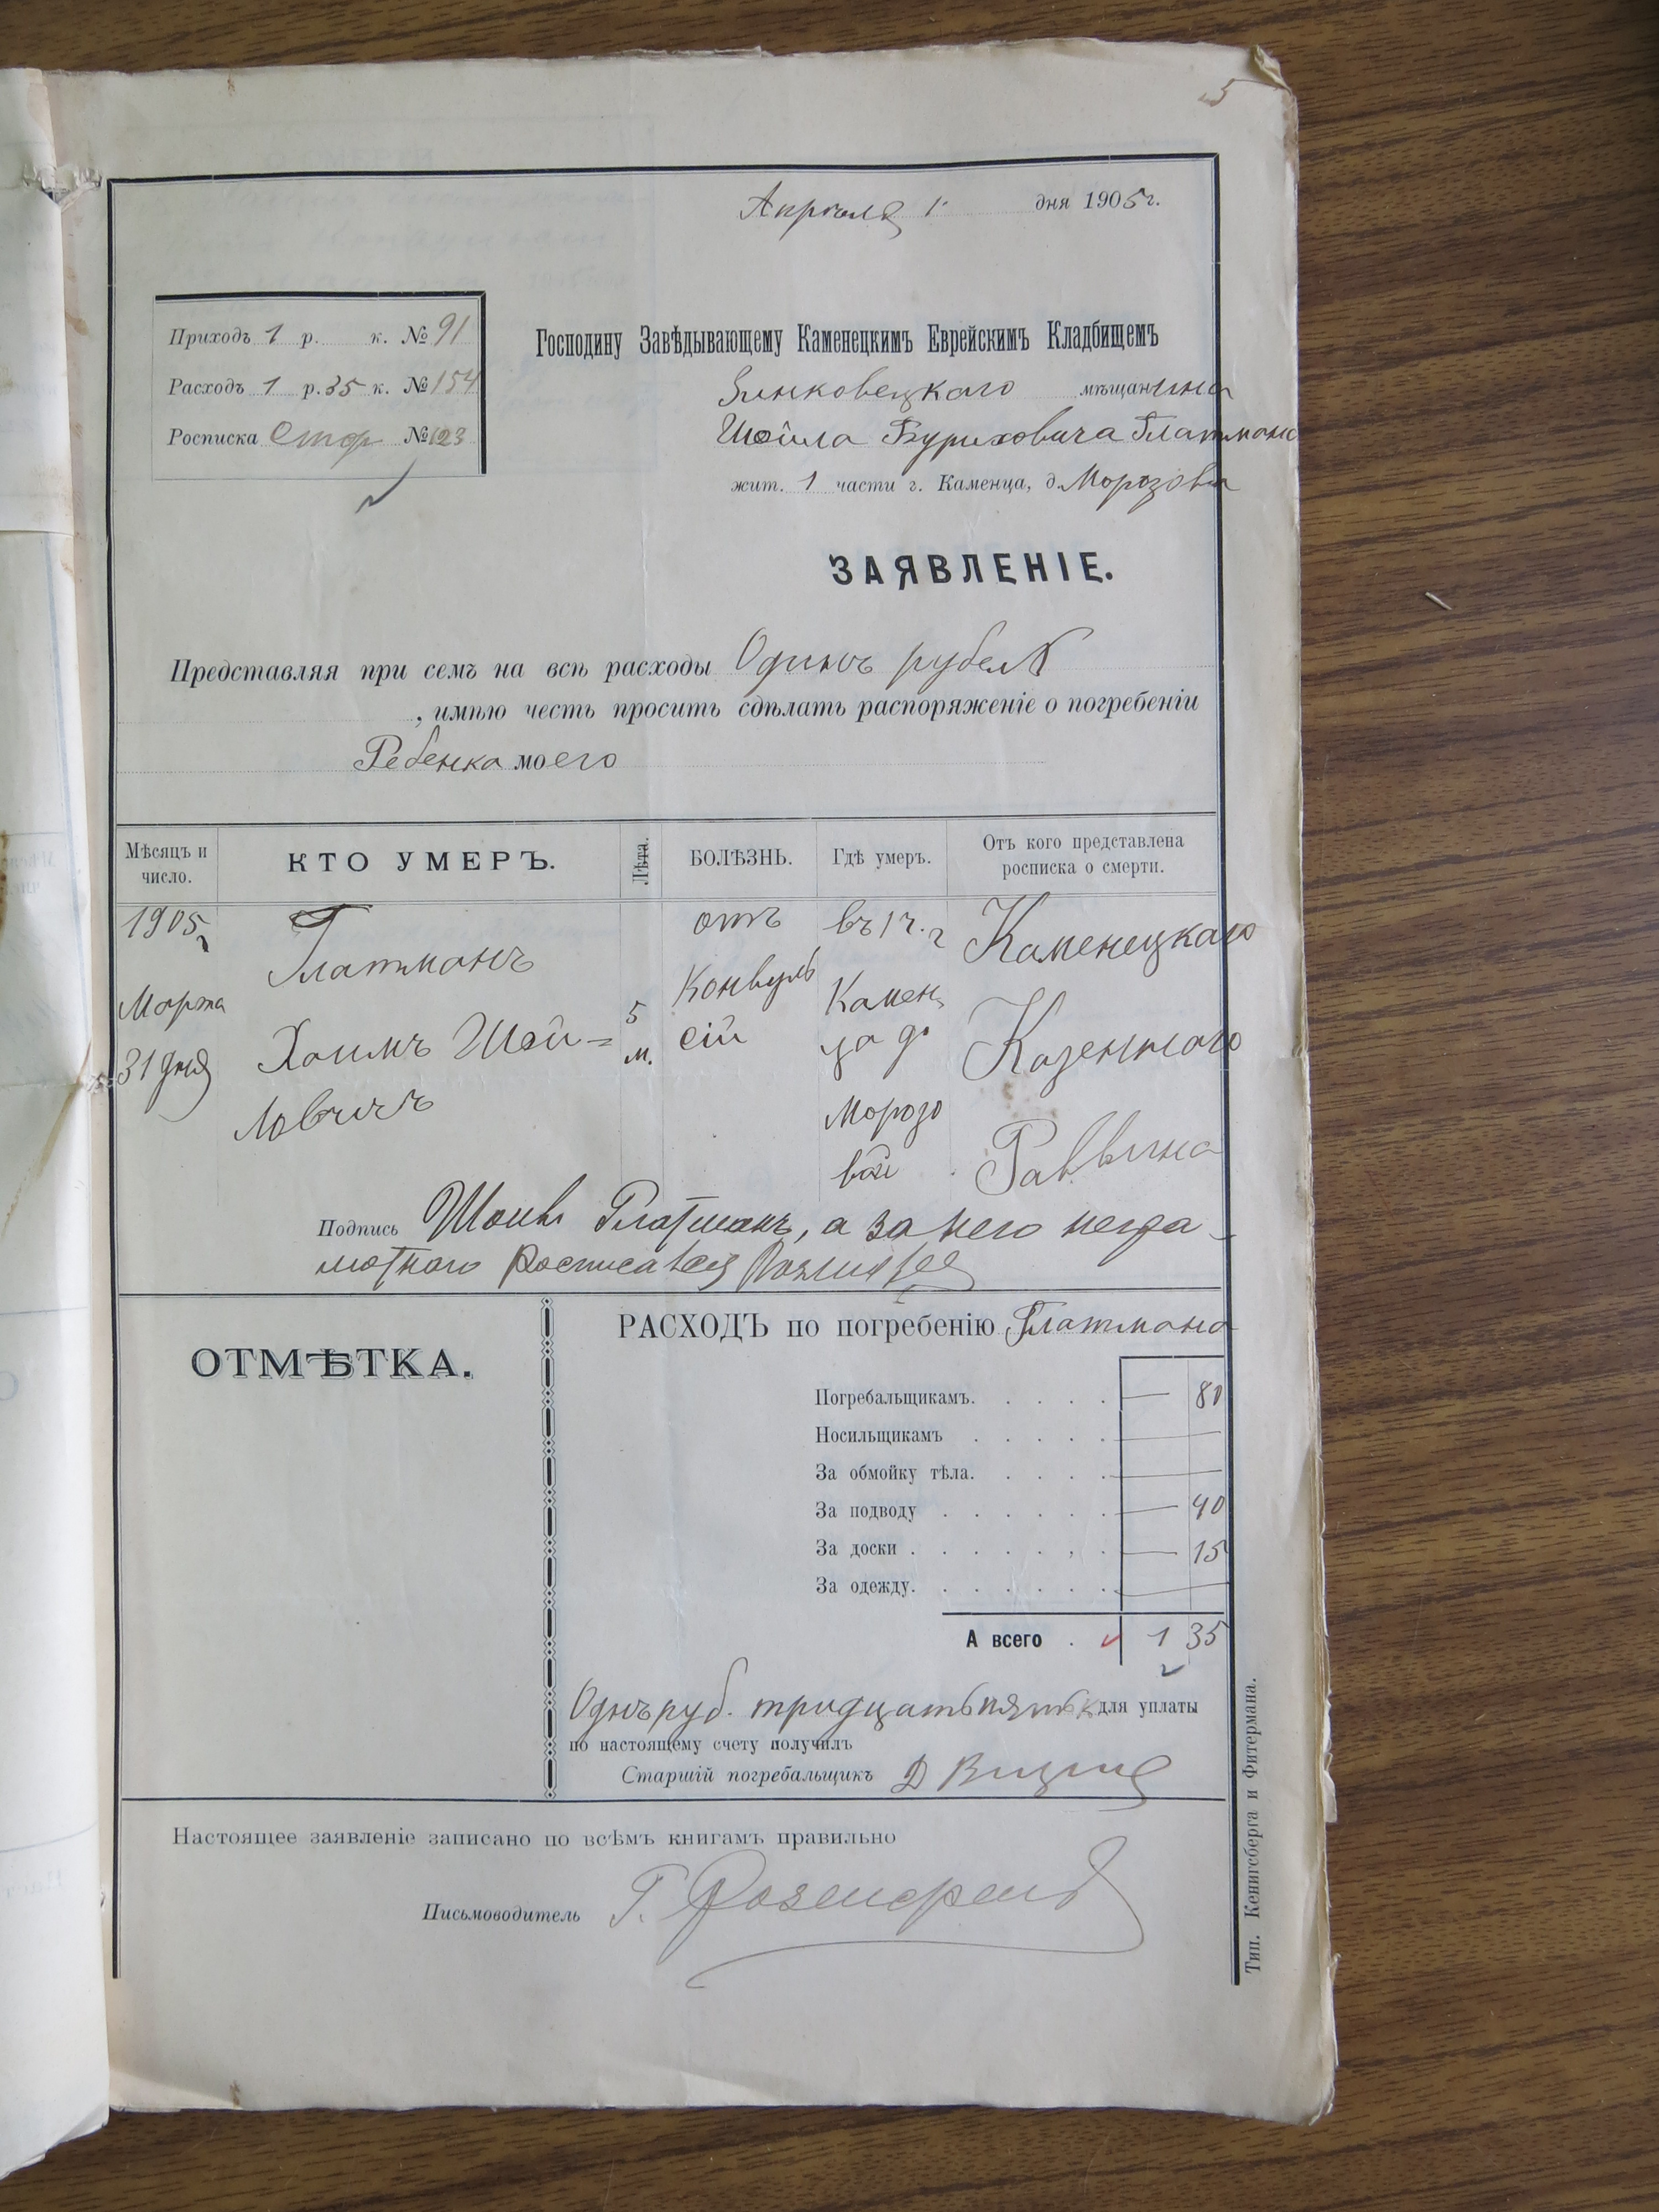 5
Апрѣля 1 дня 1905 г.
Приходъ 1 р. к. № 91
Расходъ 1 р. 35 к. № 154
Росписка Стор № 123
Господину Завѣдывающему Каменецкимъ Еврейскимъ Кладбищемъ
Зинковецкаго мѣщанина
Шойла Буриховича Глатмана
жит. 1 части г. Каменца, д. Морозова
ЗАЯВЛЕНІЕ.
Представляя при семъ на всѣ расходы Одинъ рубель
, имѣю честь просить сдѣлать распоряженіе о погребеніи
Ребенка моего
Мѣсяцъ и число.
КТО УМЕРЪ.
Лѣта.
БОЛѢЗНЬ.
Гдѣ умеръ.
Отъ кого представлена росписка о смерти.
1905 г
Марта
31 дня
Глатманъ
Хаимъ Шой=
ловичъ
5
м.
отъ
Конвуль
сій
въ 1 ч. г
Камен
ца д.
Морозо
вой
Каменецкаго
Казеннаго
Раввина
Подпись Шоилъ Глатманъ, а за него негра-
мотнаго росписался
ОТМѢТКА.
РАСХОДЪ по погребенію Глатмана
Погребальщикамъ. . . . . — 80
Носильщикамъ . . . . . —
За обмойку тѣла. . . . . —
За подводу . . . . . . — 40
За доски . . . . . . . — 15
За одежду. . . . . . . —
А всего . 1 35
Однъ руб. тридцать пять к для уплаты
по настоящему счету получилъ
Старшій погребальщикъ Д
Настоящее заявленіе записано по всѣмъ книгамъ правильно
Письмоводитель Г. Розенфельд
Тип. Кенигсберга и Фитермана.